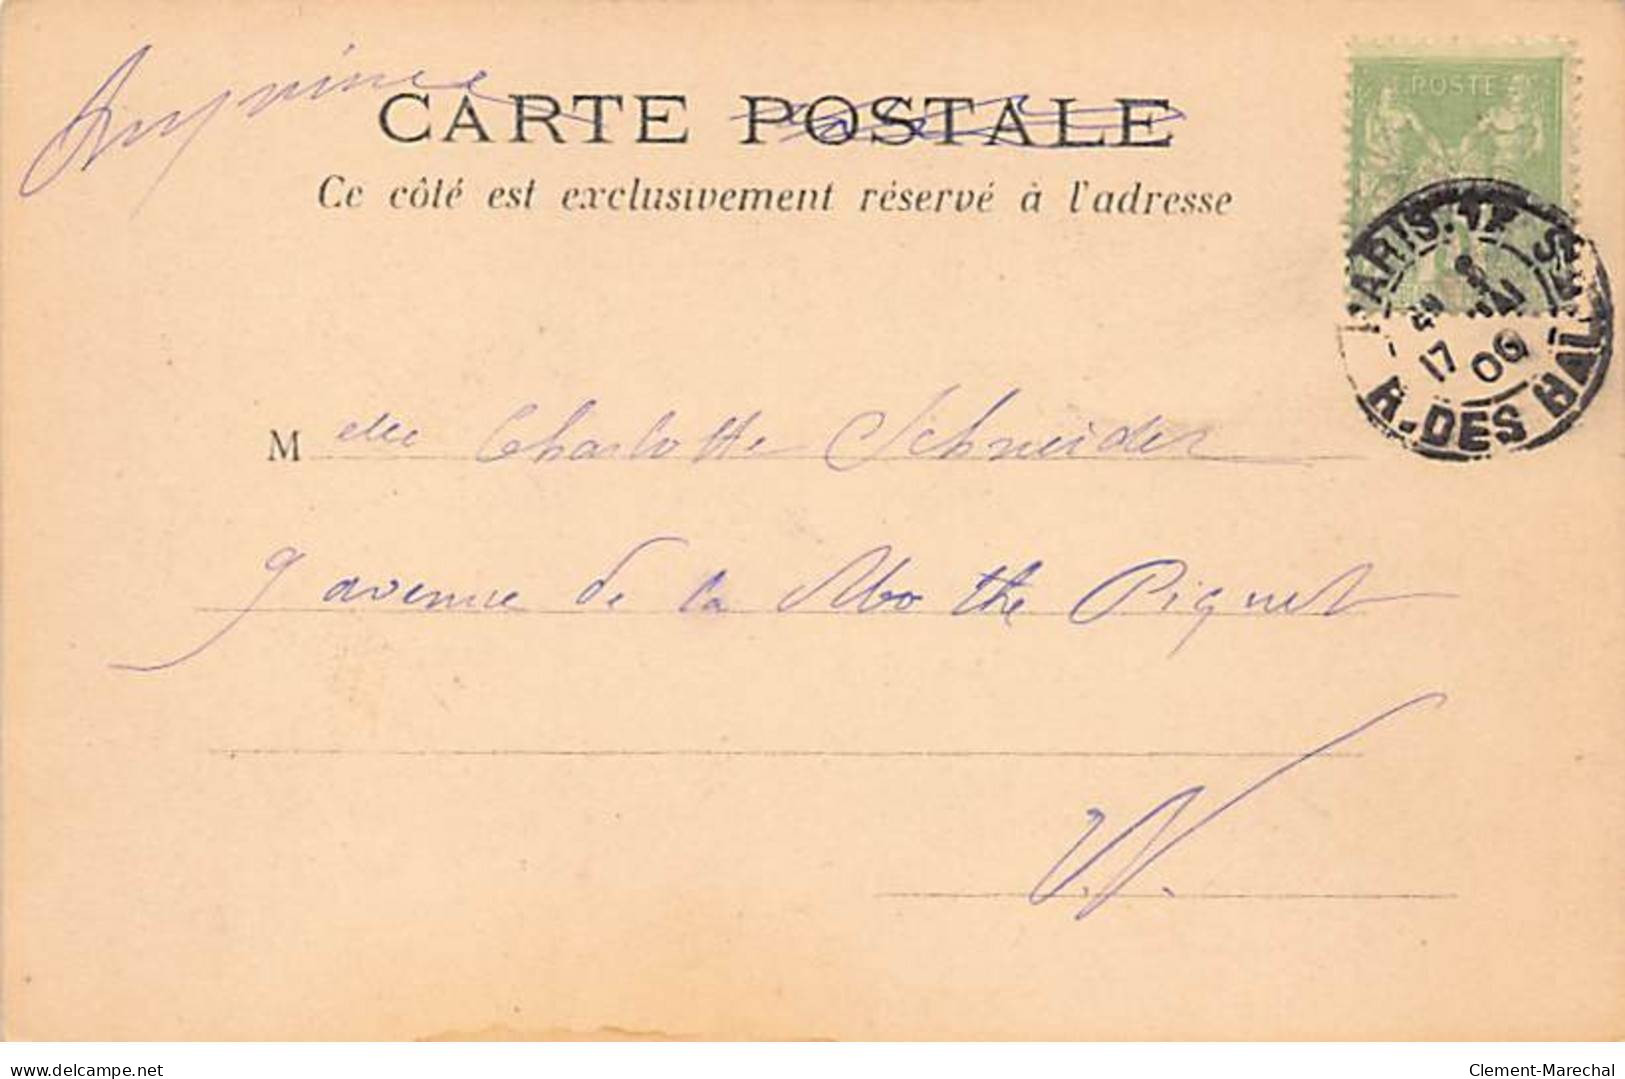 Imprimé
CARTE POSTALE
Ce côté est exclusivement réservé à l'adresse
POSTE
PARIS.17
4E 17 MAI 00
R.DES HALLES
Melle Charlotte Schneider
9 avenue de la Mothe Piquet
E.V.
delcampe.net
Clement-Marechal